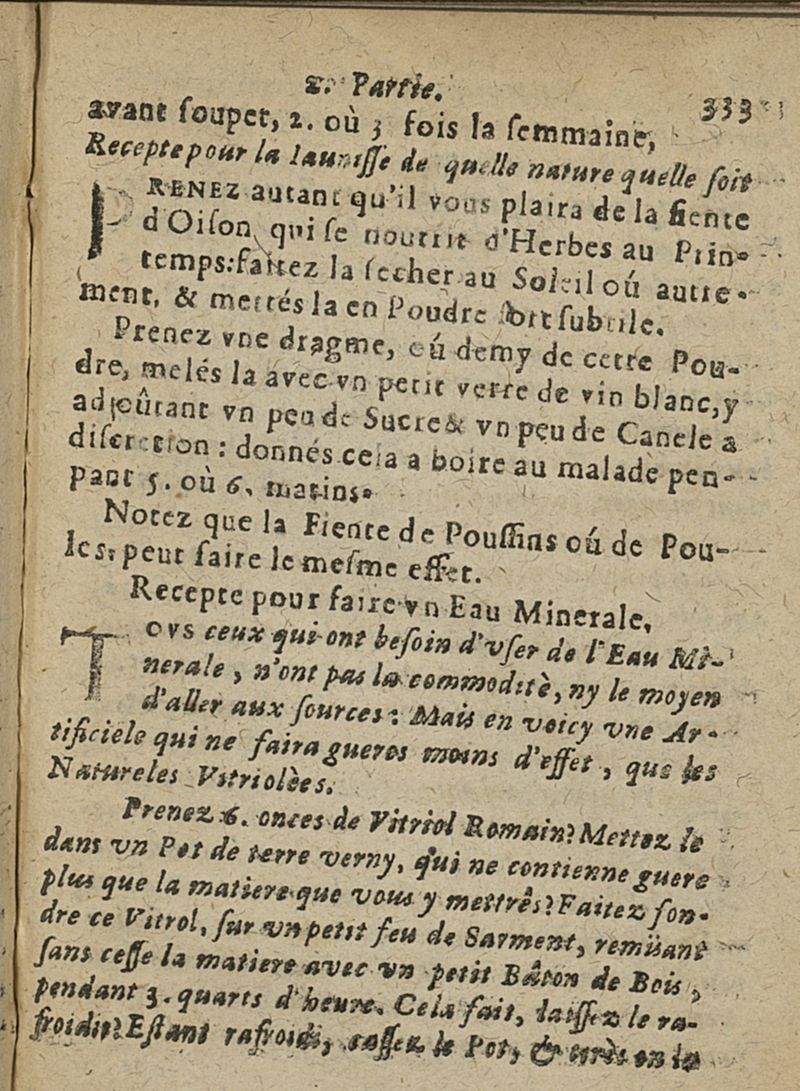 2. Partie. 333
avant ſoupet, 2. où 3 fois la ſemmaine,
Recepte pour la Iauniſſe de quelle nature quelle ſoit
PRENEZ autant qu'il vous plaira de la fiente
d'Oiſon qui ſe nourrit d'Herbes au Prin-
temps: faitez la ſecher au Soleil oú autre-
ment, & mettés la en Poudre fort ſubtile.
Prenez vne dragme, oú demy de cette Pou-
dre, melés la avec vn petit verre de vin blanc, y
adjoûtant vn peu de Sucre & vn peu de Canele a
diſcretion : donnés cela a boire au malade pen-
pant 5. où 6. matins.
Notez que la Fiente de Pouſſins oú de Pou-
les, peut faire le meſme effet.
Recepte pour faire vn Eau Minerale,
TOVS ceux qui ont beſoin d'vſer de l'Eau Mi-
nerale, n'ont pas la commoditè, ny le moyen
d'aller aux ſources: Mais en voicy vne Ar-
tificiele qui ne faira gueres moins d'effet, que les
Natureles Vitriolèes.
Prenez 6. onces de Vitriol Romain? Mettez le
dans vn Pot de terre verny, qui ne contienne guere
plus que la matiere que vous y mettrês? Faitez fon-
dre ce Vitrol, ſur vn petit feu de Sarment, remüant
ſans ceſſe la matiere avec vn petit Bâton de Bois,
pendant 3. quarts d'heure. Cela fait, laiſſez le ra-
froidir? Eſtant rafroidi, caſſez le Pot, & en la